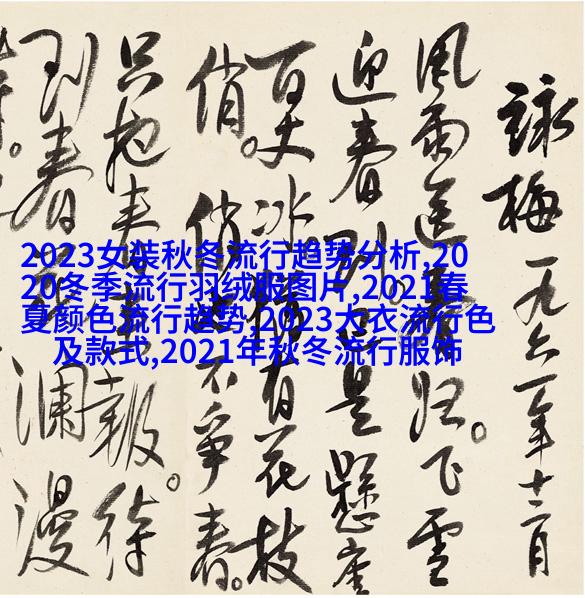 2023女装秋冬流行趋势分析,20
20冬季流行羽绒服图片,2021春
夏颜色流行趋势,2023大衣流行色
及款式,2021年秋冬流行服饰
詠梅 一九六一年十二月
风雨送春归。飞雪
迎春到。已是懸崖
百丈冰。有花枝
俏。俏不争春。
只把春報。待
到春瀾漫